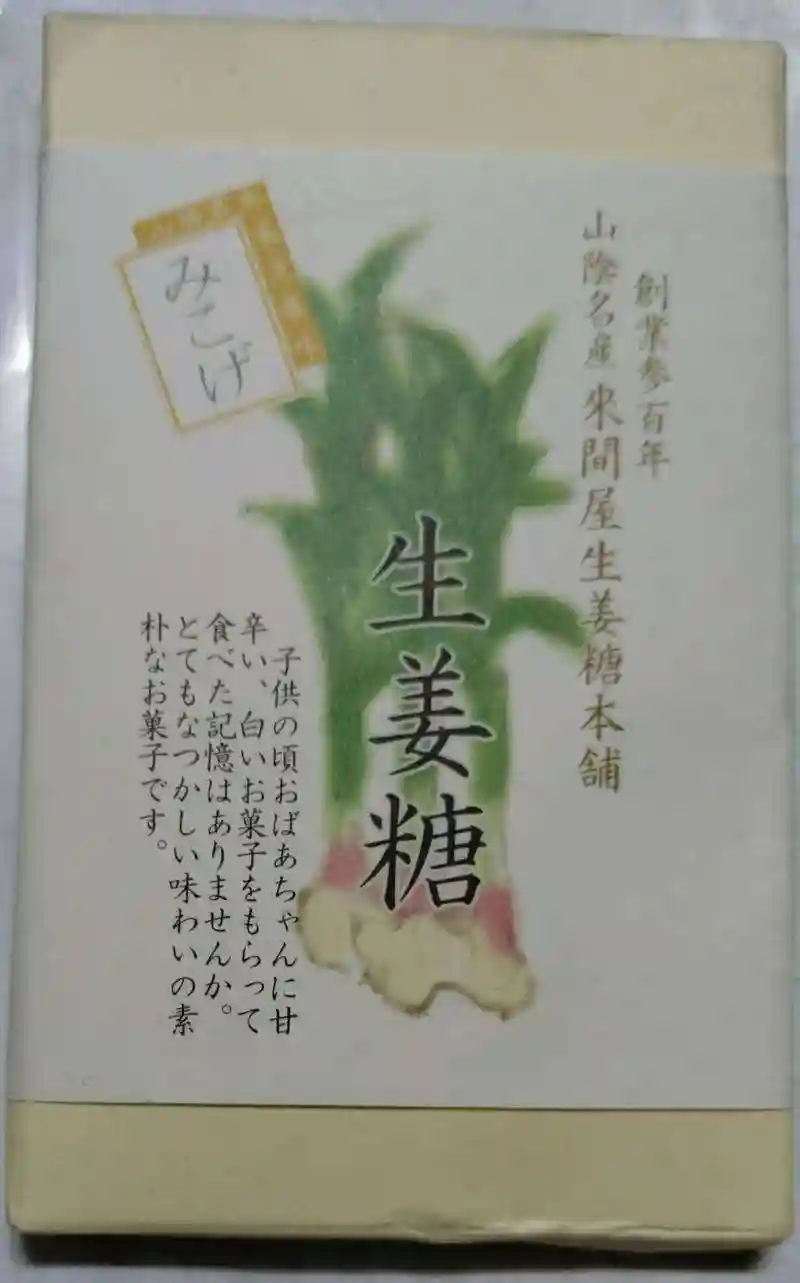 創業参百年
山陰名産 來間屋生姜糖本舗
生姜糖
みこげ
子供の頃おばあちゃんに甘
辛い、白いお菓子をもらって
食べた記憶はありませんか。
とてもなつかしい味わいの素
朴なお菓子です。